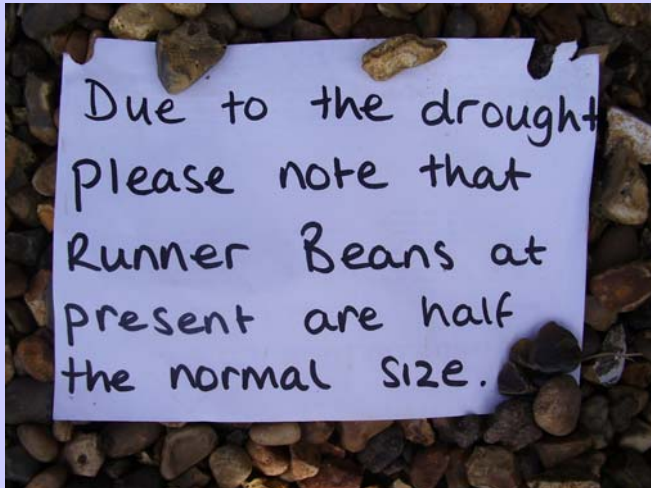 Due to the drought
please note that
Runner Beans at
present are half
the normal size.